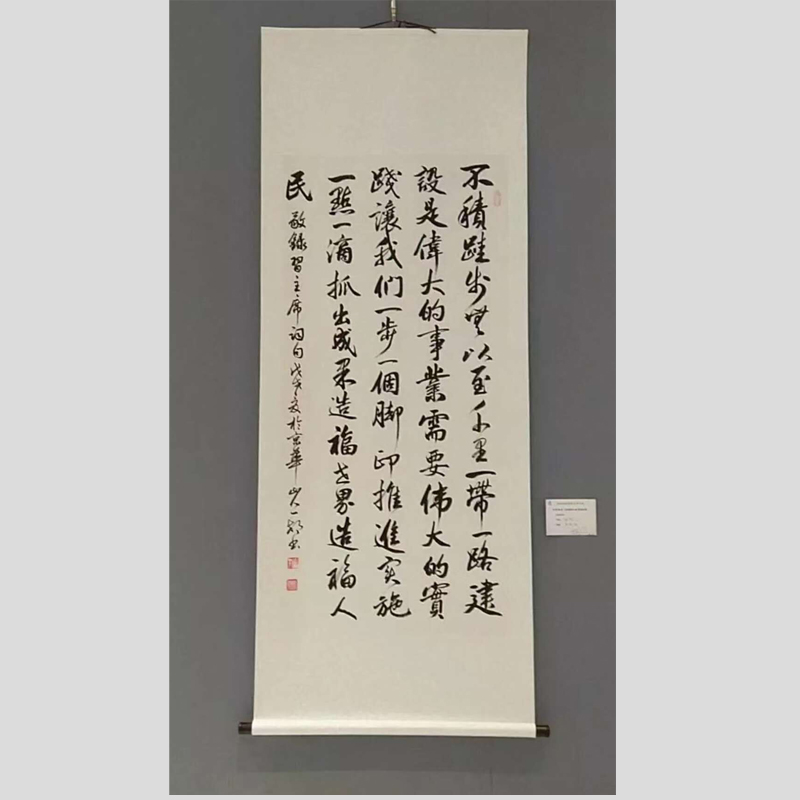 不積跬步無以至千里一帶一路建
設是偉大的事業需要偉大的實
踐讓我们一步一個脚印推進实施
一點一滴抓出成果造福世界造福人
民
敬録習主席词句戊戌夏於京華